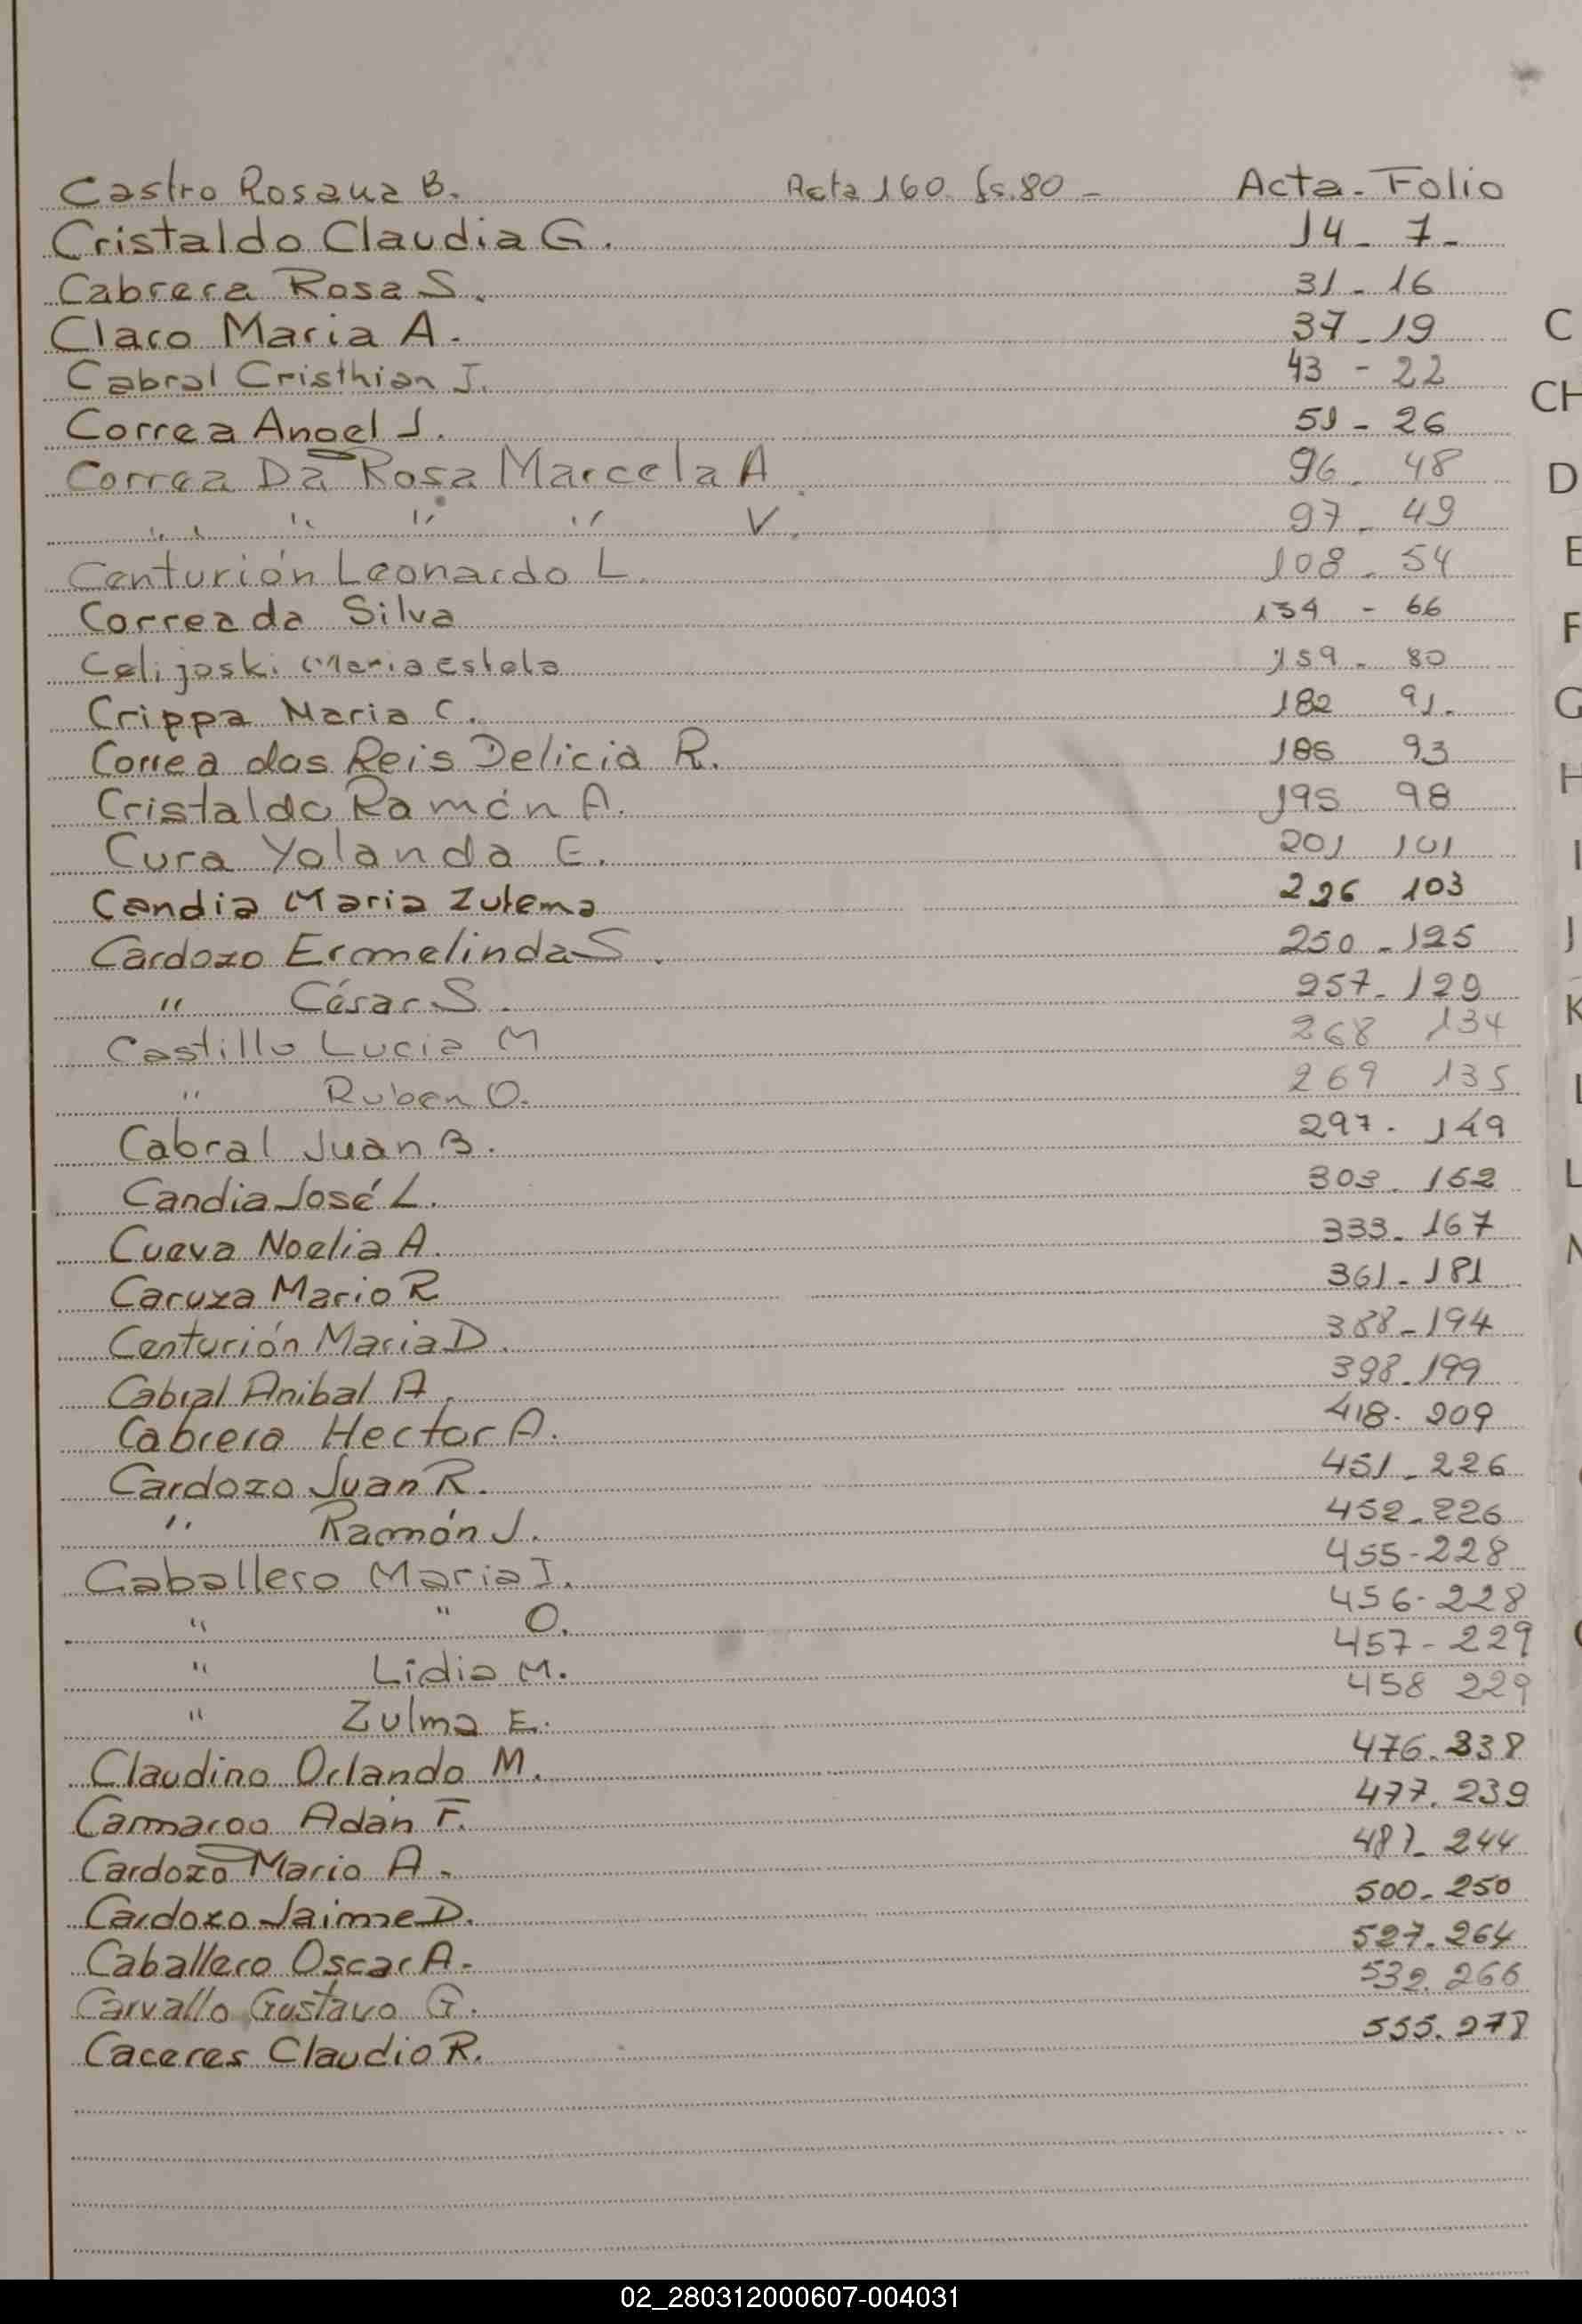 Castro Rosana B. Acta 160. fs. 80 - Acta - Folio
Cristaldo Claudia G. 14 - 7 -
Cabrera Rosa S. 31 - 16
Claro Maria A. 37 - 19
Cabral Cristhian J. 43 - 22
Correa Angel J. 51 - 26
Correa Da Rosa Marcela A. 96 - 48
" " " " " V. 97 - 49
Centurión Leonardo L. 108 - 54
Correa da Silva 134 - 66
Celijoski Maria Estela 159 - 80
Crippa Maria C. 182 91.
Correa dos Reis Delicia R. 186 93
Cristaldo Ramón A. 195 98
Cura Yolanda E. 201 101
Candia Maria Zulema 103
Cardozo Ermelinda S. 250 - 125
" César S. 257 - 129
Castillo Lucia M 268 134
" Ruben O. 269 135
Cabral Juan B. 297 - 149
Candia José L. 303 - 152
Cueva Noelia A. 333 - 167
Caruza Mario R 361 - 181
Centurión Maria D. 388 - 194
Cabral Anibal A. 398 - 199
Cabrera Hector A. 418 - 209
Cardozo Juan R. 451 - 226
" Ramón J. 452 - 226
Caballero Maria I. 455 - 228
" " O. 456 - 228
" Lidia M. 457 - 229
" Zulma E. 458 229
Claudino Orlando M. 476 - 238
Camargo Adán F. 477 - 239
Cardozo Mario A. 487 - 244
Cardozo Jaime D. 500 - 250
Caballero Oscar A. 527 - 264
Carvallo Gustavo G. 532 - 266
Caceres Claudio R. 555 - 278
C
CH
D
E
F
G
H
I
J
K
L
02_280312000607-004031